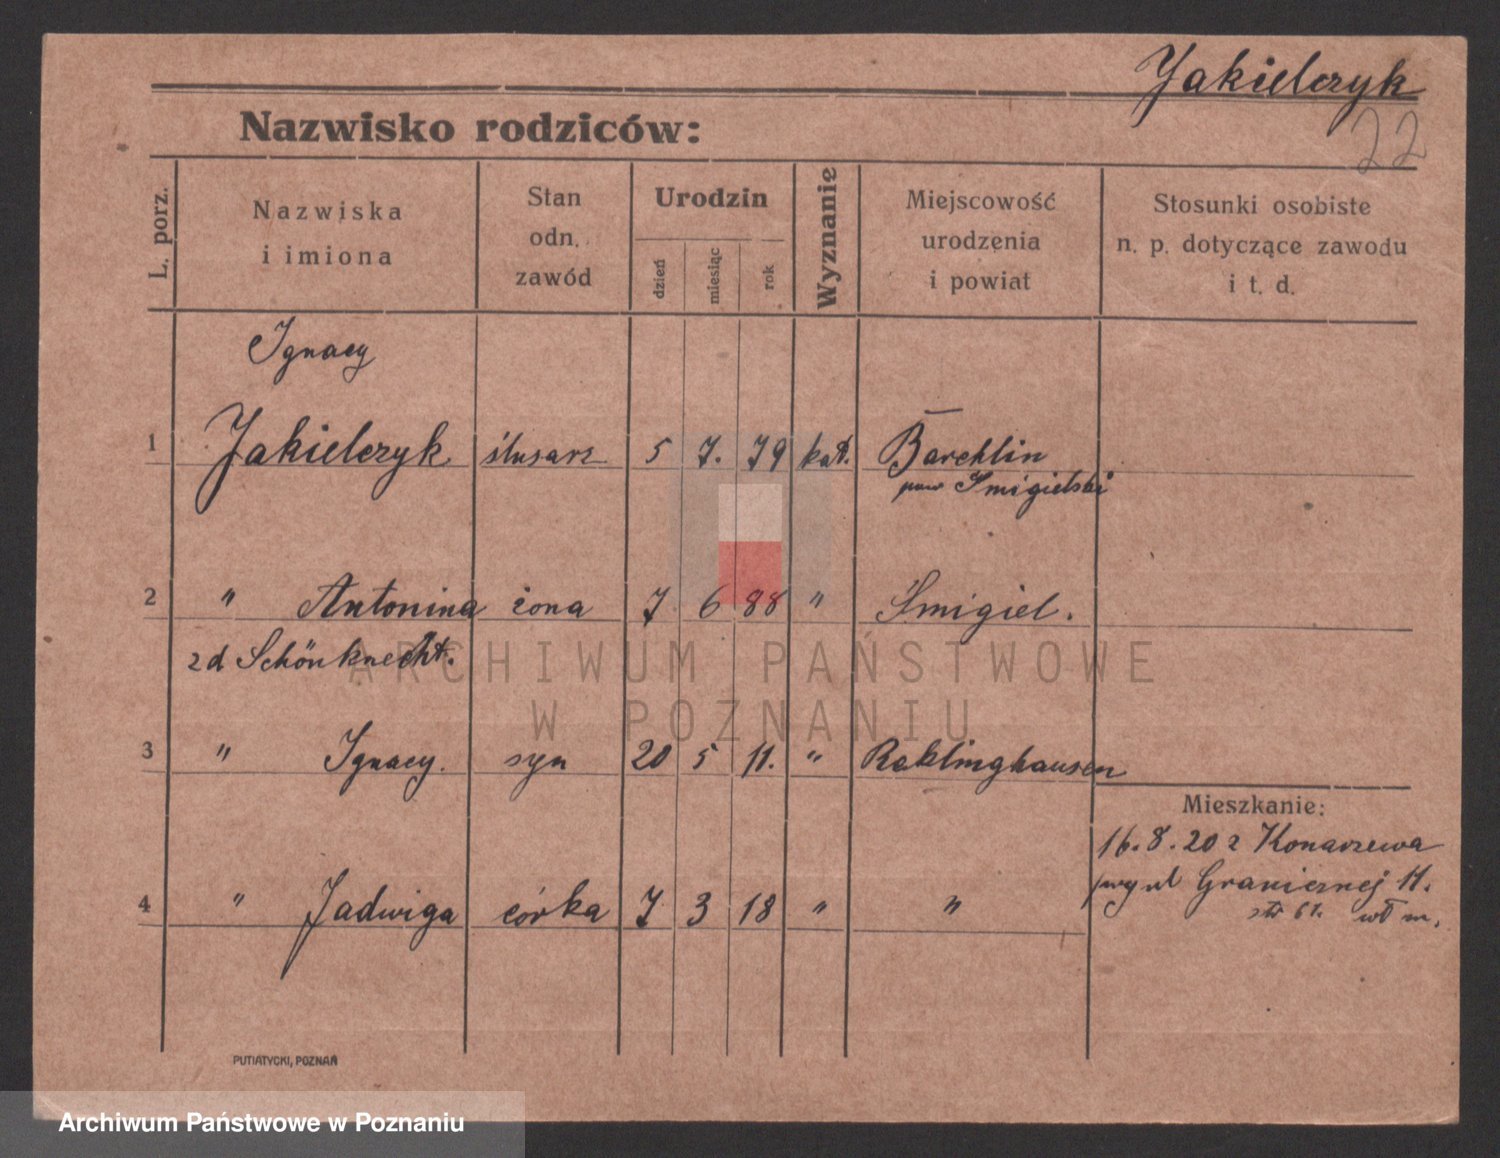 Jakielczyk
22
Nazwisko rodziców:
L. porz.
Nazwiska
i imiona
Stan
odn.
zawód
Urodzin
dzień
miesiąc
rok
Wyznanie
Miejscowość
urodzenia
i powiat
Stosunki osobiste
n. p. dotyczące zawodu
i t. d.
Ignacy
1 Jakielczyk ślusarz 5 7. 79 kat. Barchlin
pow Śmigielski
2 " Antonina żona 7 6 88 " Śmigiel.
zd Schönknecht.
ARCHIWUM PAŃSTWOWE
W POZNANIU
3 " Ignacy. syn 20 5 11. " Reklinghausen
Mieszkanie:
16.8.20 z Konarzewa
przy ul Granicznej 11.
4 " Jadwiga córka 7 3 18 " "
PUTIATYCKI, POZNAŃ
Archiwum Państwowe w Poznaniu